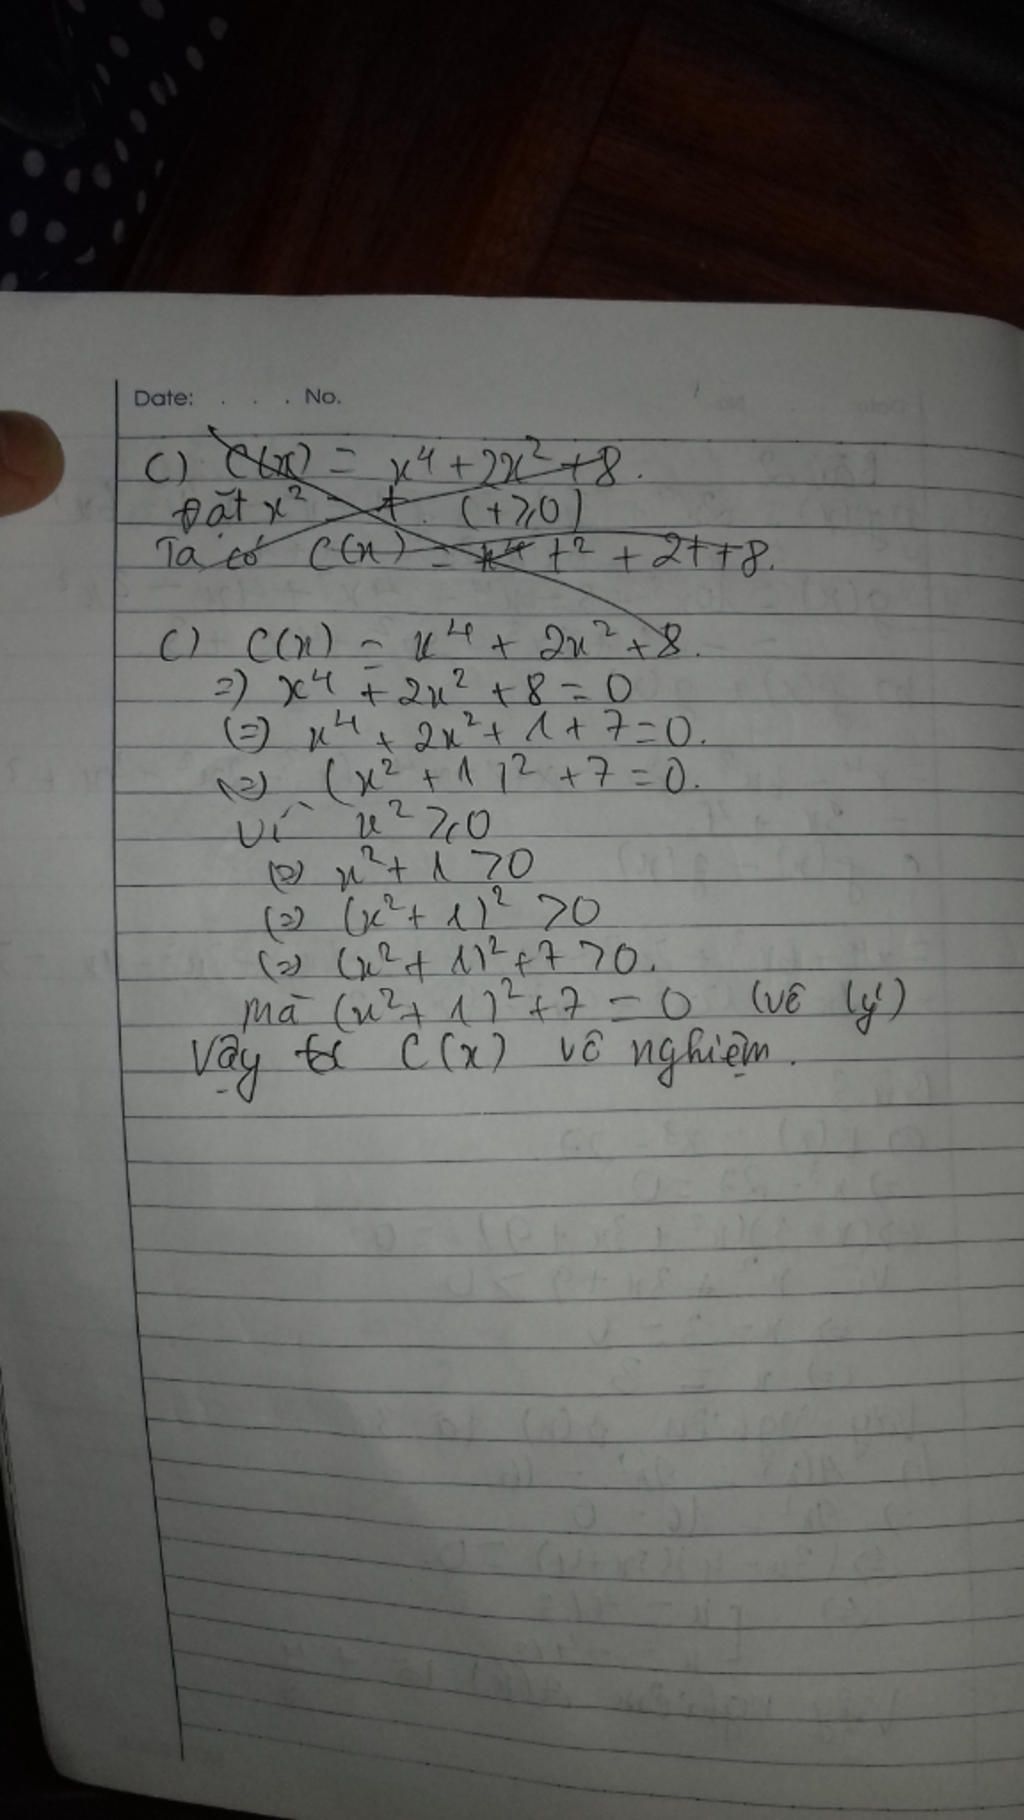 Date: . . . No.
C) C(x) = x⁴ + 2x² + 8.
Đặt x² = t. (t ⩾ 0)
Ta có C(x) = t² + 2t + 8.
C) C(x) = x⁴ + 2x² + 8.
=) x⁴ + 2x² + 8 = 0
(=) x⁴ + 2x² + 1 + 7 = 0.
(=) (x² + 1)² + 7 = 0.
Vì x² ⩾ 0
(=) x² + 1 > 0
(=) (x² + 1)² > 0
(=) (x² + 1)² + 7 > 0.
mà (x² + 1)² + 7 = 0 (vô lý)
Vậy C(x) vô nghiệm.